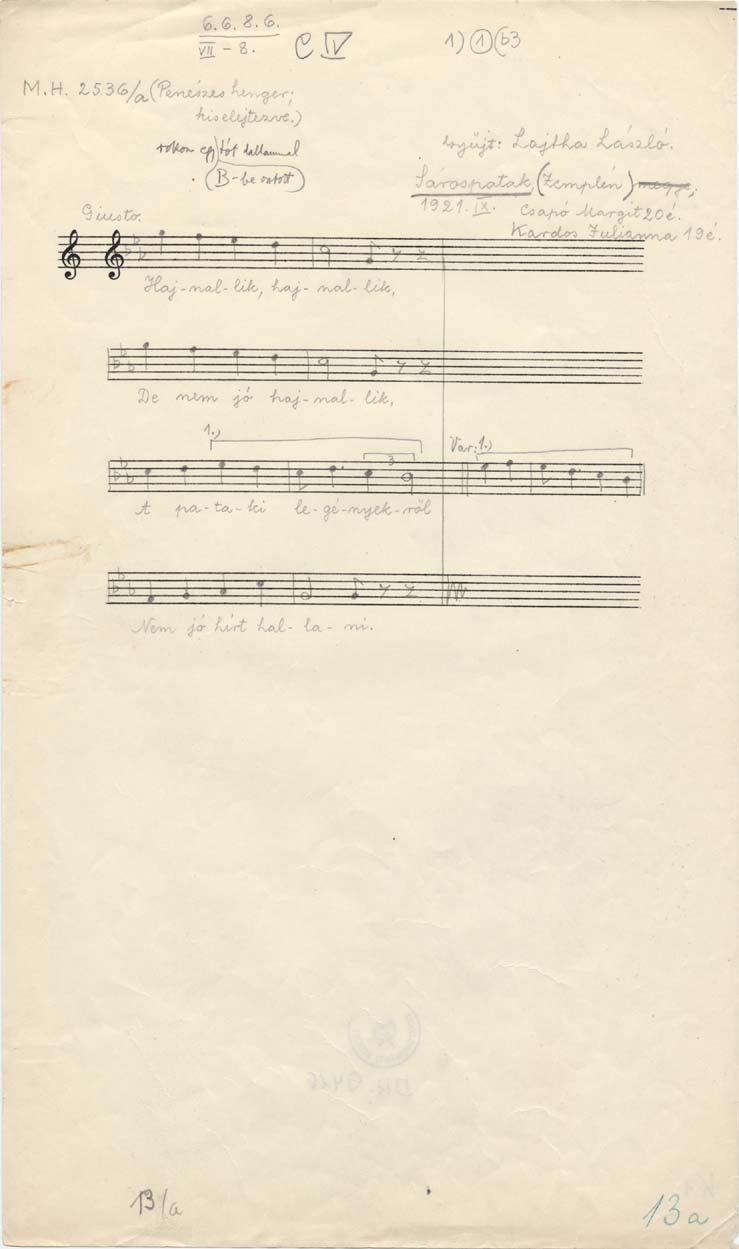 6.6.8.6.
VII – 8.
C IV
1) 1 (b3
M.H. 2536/a (Penészes henger;
kiselejtezve.)
rokon egy tót dallammal
(B-be osztott)
Gyűjt: Lajtha László.
Sárospatak, (Zemplén) megye;
1921. IX. Csapó Margit 20 é.
Kardos Julianna 19 é.
Giusto.
Haj-nal-lik, haj-nal-lik,
De nem jó haj-nal-lik,
1.)
Var: 1.)
3
A pa-ta-ki le-gé-nyek-ről
Nem jó hírt hal-la-ni.
13/a
13a